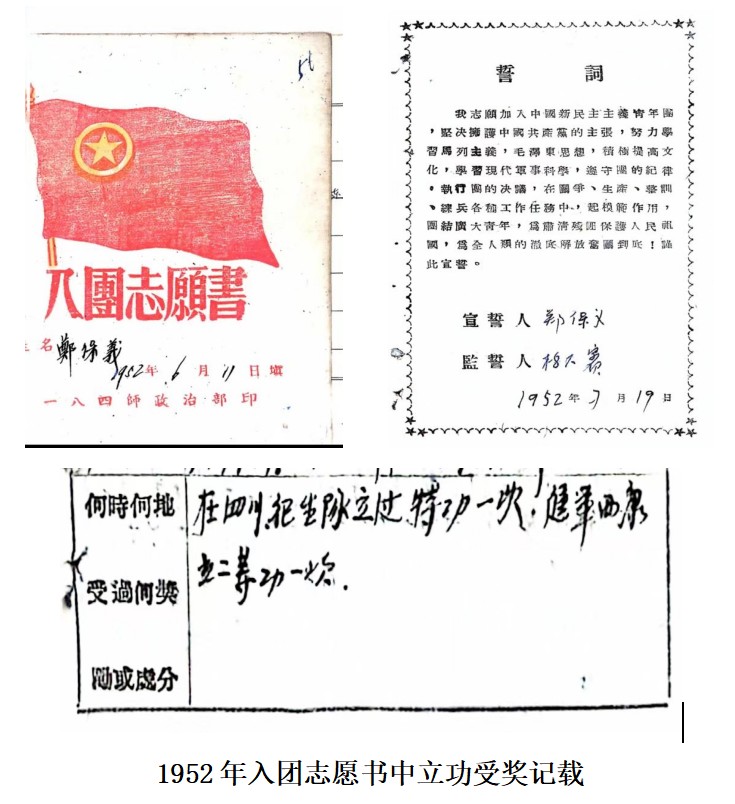 51
入團志願書
名 鄭保義
1952年 6 月 11 日填
一八四師政治部印
誓詞
我志願加入中國新民主主義青年團
，堅决擁護中國共產黨的主張，努力學
習馬列主義，毛澤東思想，積極提高文
化，學習現代軍事科學，遵守團的紀律
。執行團的决議，在鬭爭、生產、整訓
、練兵各種工作任務中，起模範作用，
團結廣大青年，爲肅清殘匪保護人民祖
國，爲全人類的澈底解放奮鬭到底！謹
此宣誓。
宣誓人 鄭保义
監誓人
1952年 7 月 19 日
何時何地
受過何獎
勵或處分
在四川 立过特功一次！進軍西康
立二等功一次.
1952 年入团志愿书中立功受奖记载